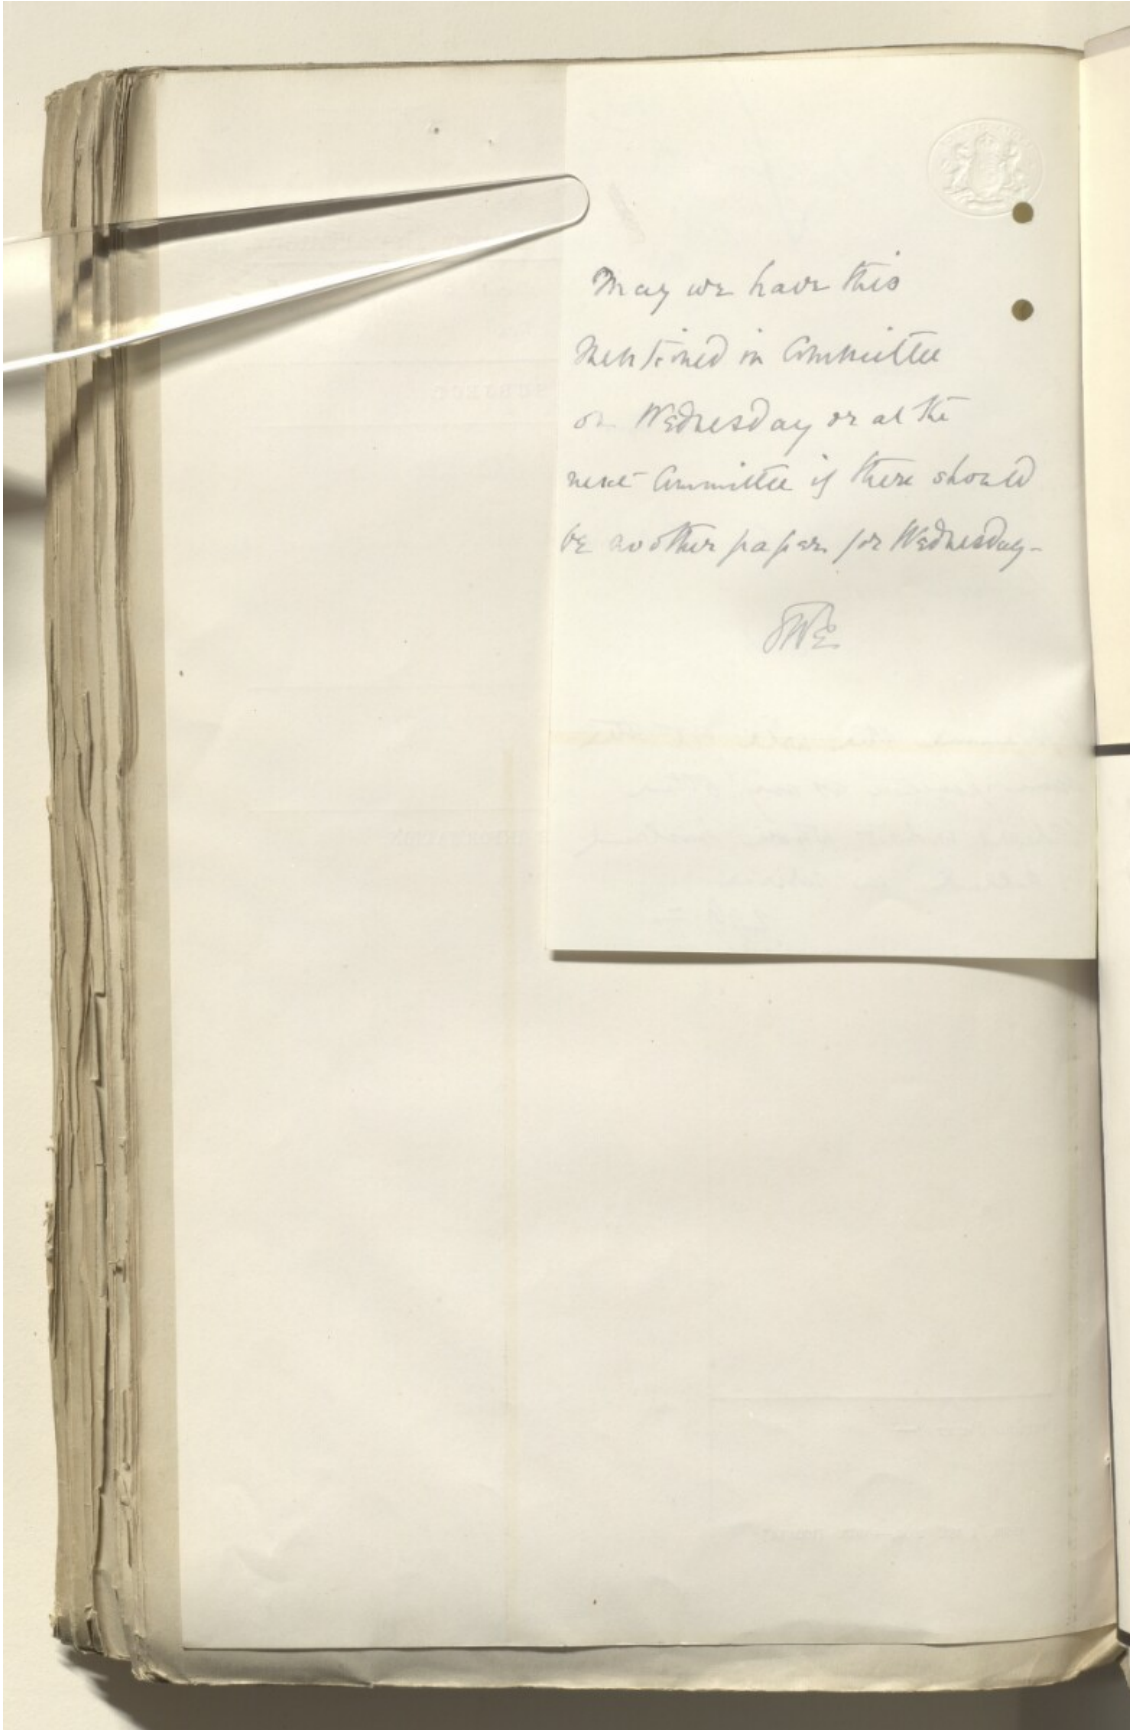 May we have this
mentioned in Committee
on Wednesday or at the
next Committee if there should
be another paper for Wednesday -
SUBJECT